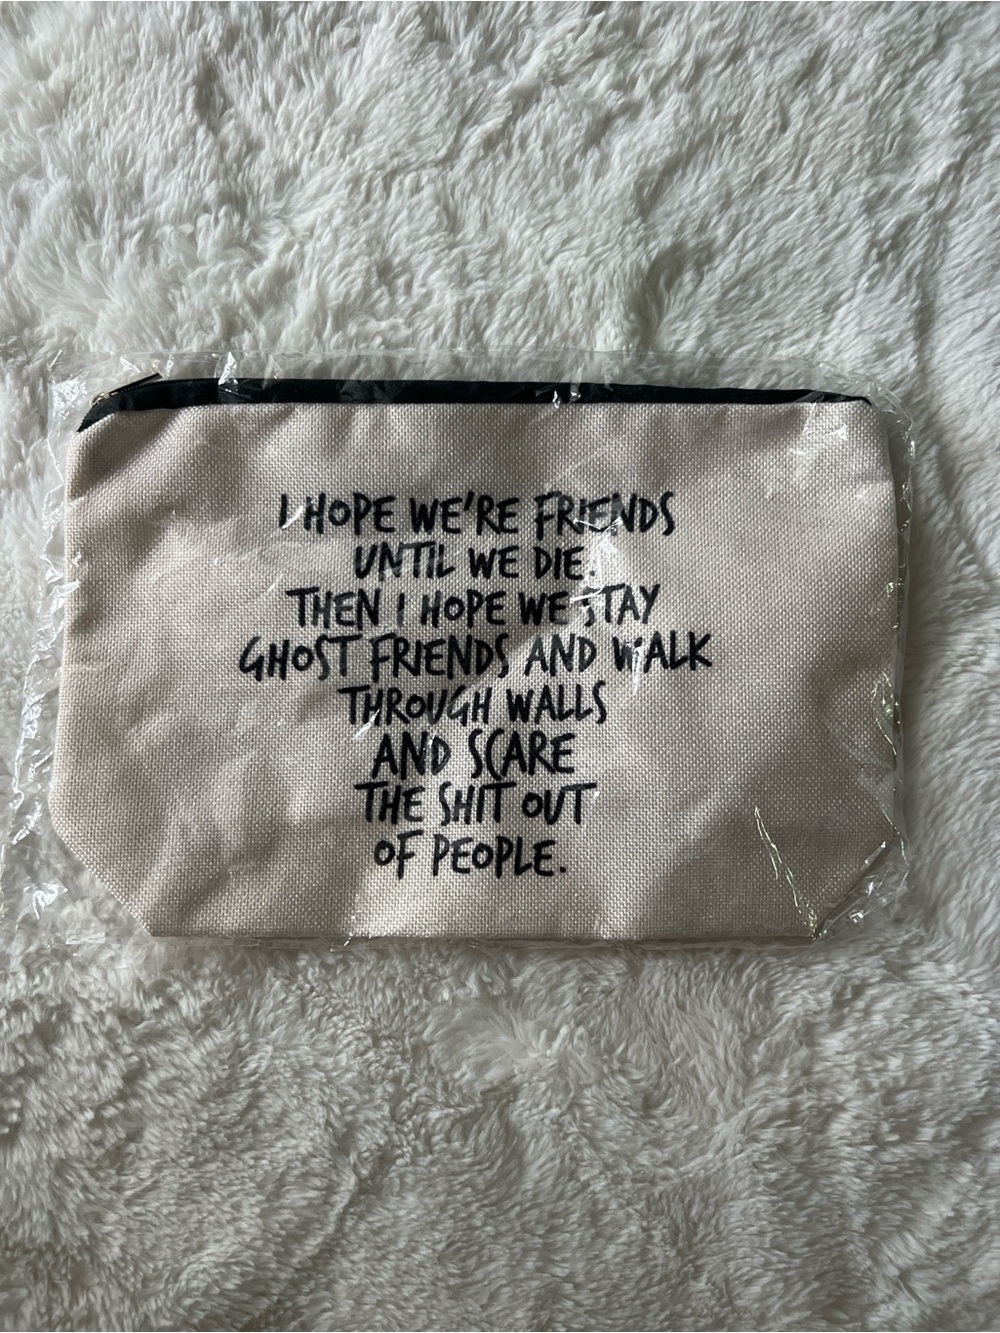 I HOPE WE'RE FRIENDS
UNTIL WE DIE.
THEN I HOPE WE STAY
GHOST FRIENDS AND WALK
THROUGH WALLS
AND SCARE
THE SHIT OUT
OF PEOPLE.